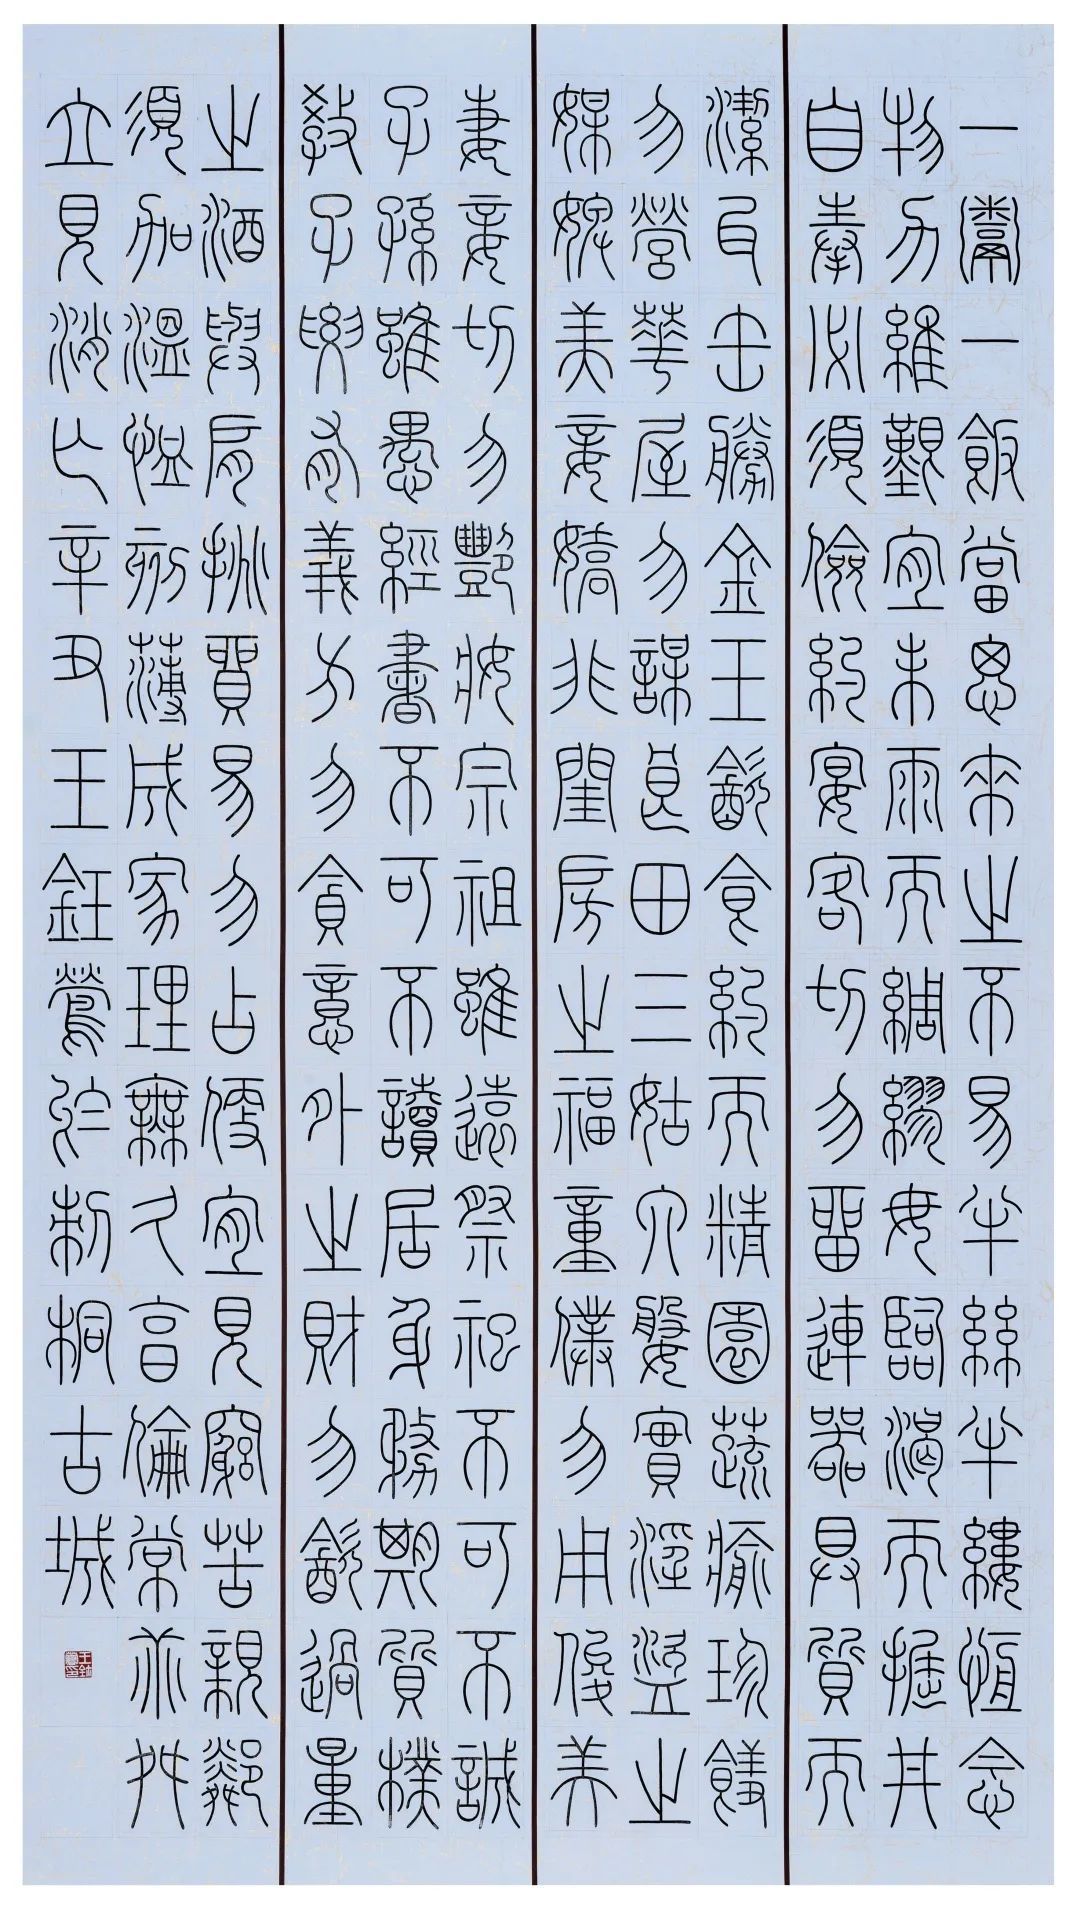 一鬻一飯當思來之不易半絲半縷恆念
物力維艱宜未雨而綢繆毋臨渴而掘井
自奉必須儉約宴客切勿留連器具質而
潔瓦缶勝金玉飲食約而精園蔬瘉珍饈
勿營華屋勿謀良田三姑六婆實淫盜之
媒婢美妾嬌非閨房之福童僕勿用俊美
妻妾切勿豔妝宗祖雖遠祭祀不可不誠
子孫雖愚經書不可不讀居身務期質樸
教子要有義方勿貪意外之財勿飲過量
之酒與肩挑貿易勿占便宜見窮苦親鄰
須加溫恤刻薄成家理無久享倫常乖舛
立見消亡辛丑王鈺鶯於刺桐古城